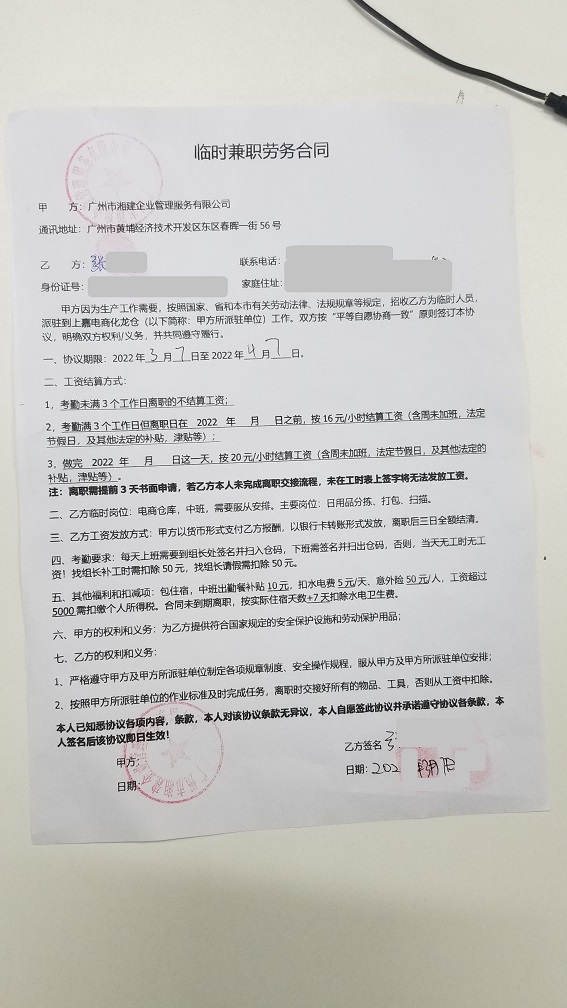 临时兼职劳务合同
甲 方：广州市湘建企业管理服务有限公司
通讯地址：广州市黄埔经济技术开发区东区春晖一街 56 号
乙 方：张
联系电话：
身份证号：
家庭住址：
甲方因为生产工作需要，按照国家、省和本市有关劳动法律、法规规章等规定，招收乙方为临时人员，
派驻到上嘉电商化龙仓（以下简称：甲方所派驻单位）工作。双方按“平等自愿协商一致”原则签订本协
议，明确双方权利/义务，并共同遵守履行。
一、协议期限：2022 年 3 月 7 日至 2022 年 4 月 7 日。
二、工资结算方式：
1，考勤未满 3 个工作日离职的不结算工资；
2，考勤满 3 个工作日但离职日在 2022 年 月 日之前，按 16 元/小时结算工资（含周末加班，法定
节假日，及其他法定的补贴，津贴等）；
3，做完 2022 年 月 日这一天，按 20 元/小时结算工资（含周末加班，法定节假日，及其他法定的
补贴，津贴等）。
注：离职需提前 3 天书面申请，若乙方本人未完成离职交接流程，未在工时表上签字将无法发放工资。
二、乙方临时岗位：电商仓库，中班，需要服从安排。主要岗位：日用品分拣、打包、扫描。
三、乙方工资发放方式：甲方以货币形式支付乙方报酬，以银行卡转账形式发放，离职后三日全额结清。
四、考勤要求：每天上班需要到组长处签名并扫入仓码，下班需签名并扫出仓码，否则，当天无工时无工
资！找组长补工时需扣除 50 元，找组长请假需扣除 50 元。
五、其他福利和扣减项：包住宿，中班出勤餐补贴 10 元，扣水电费 5 元/天、意外险 50 元/人，工资超过
5000 需扣缴个人所得税。合同未到期离职，按实际住宿天数+7 天扣除水电卫生费。
六、甲方的权利和义务：为乙方提供符合国家规定的安全保护设施和劳动保护用品；
七、乙方的权利和义务：
1、严格遵守甲方及甲方所派驻单位制定各项规章制度、安全操作规程，服从甲方及甲方所派驻单位安排；
2、按照甲方所派驻单位的作业标准及时完成任务，离职时交接好所有的物品、工具，否则从工资中扣除。
本人已知悉协议各项内容，条款，本人对该协议条款无异议，本人自愿签此协议并承诺遵守协议各条款，本
人签名后该协议即日生效！
甲方：
乙方签名
日期：
日期：202